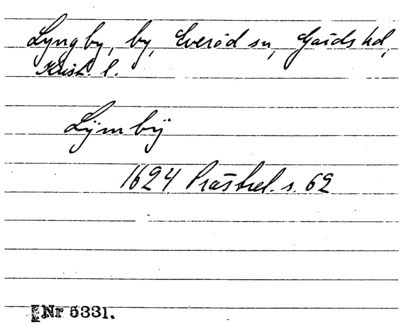 Lyngby, by, Everöd sn, Gärds hd,
Krist l.
Lÿmbÿ
1624 Prästrel. s. 62
Nr 5331.